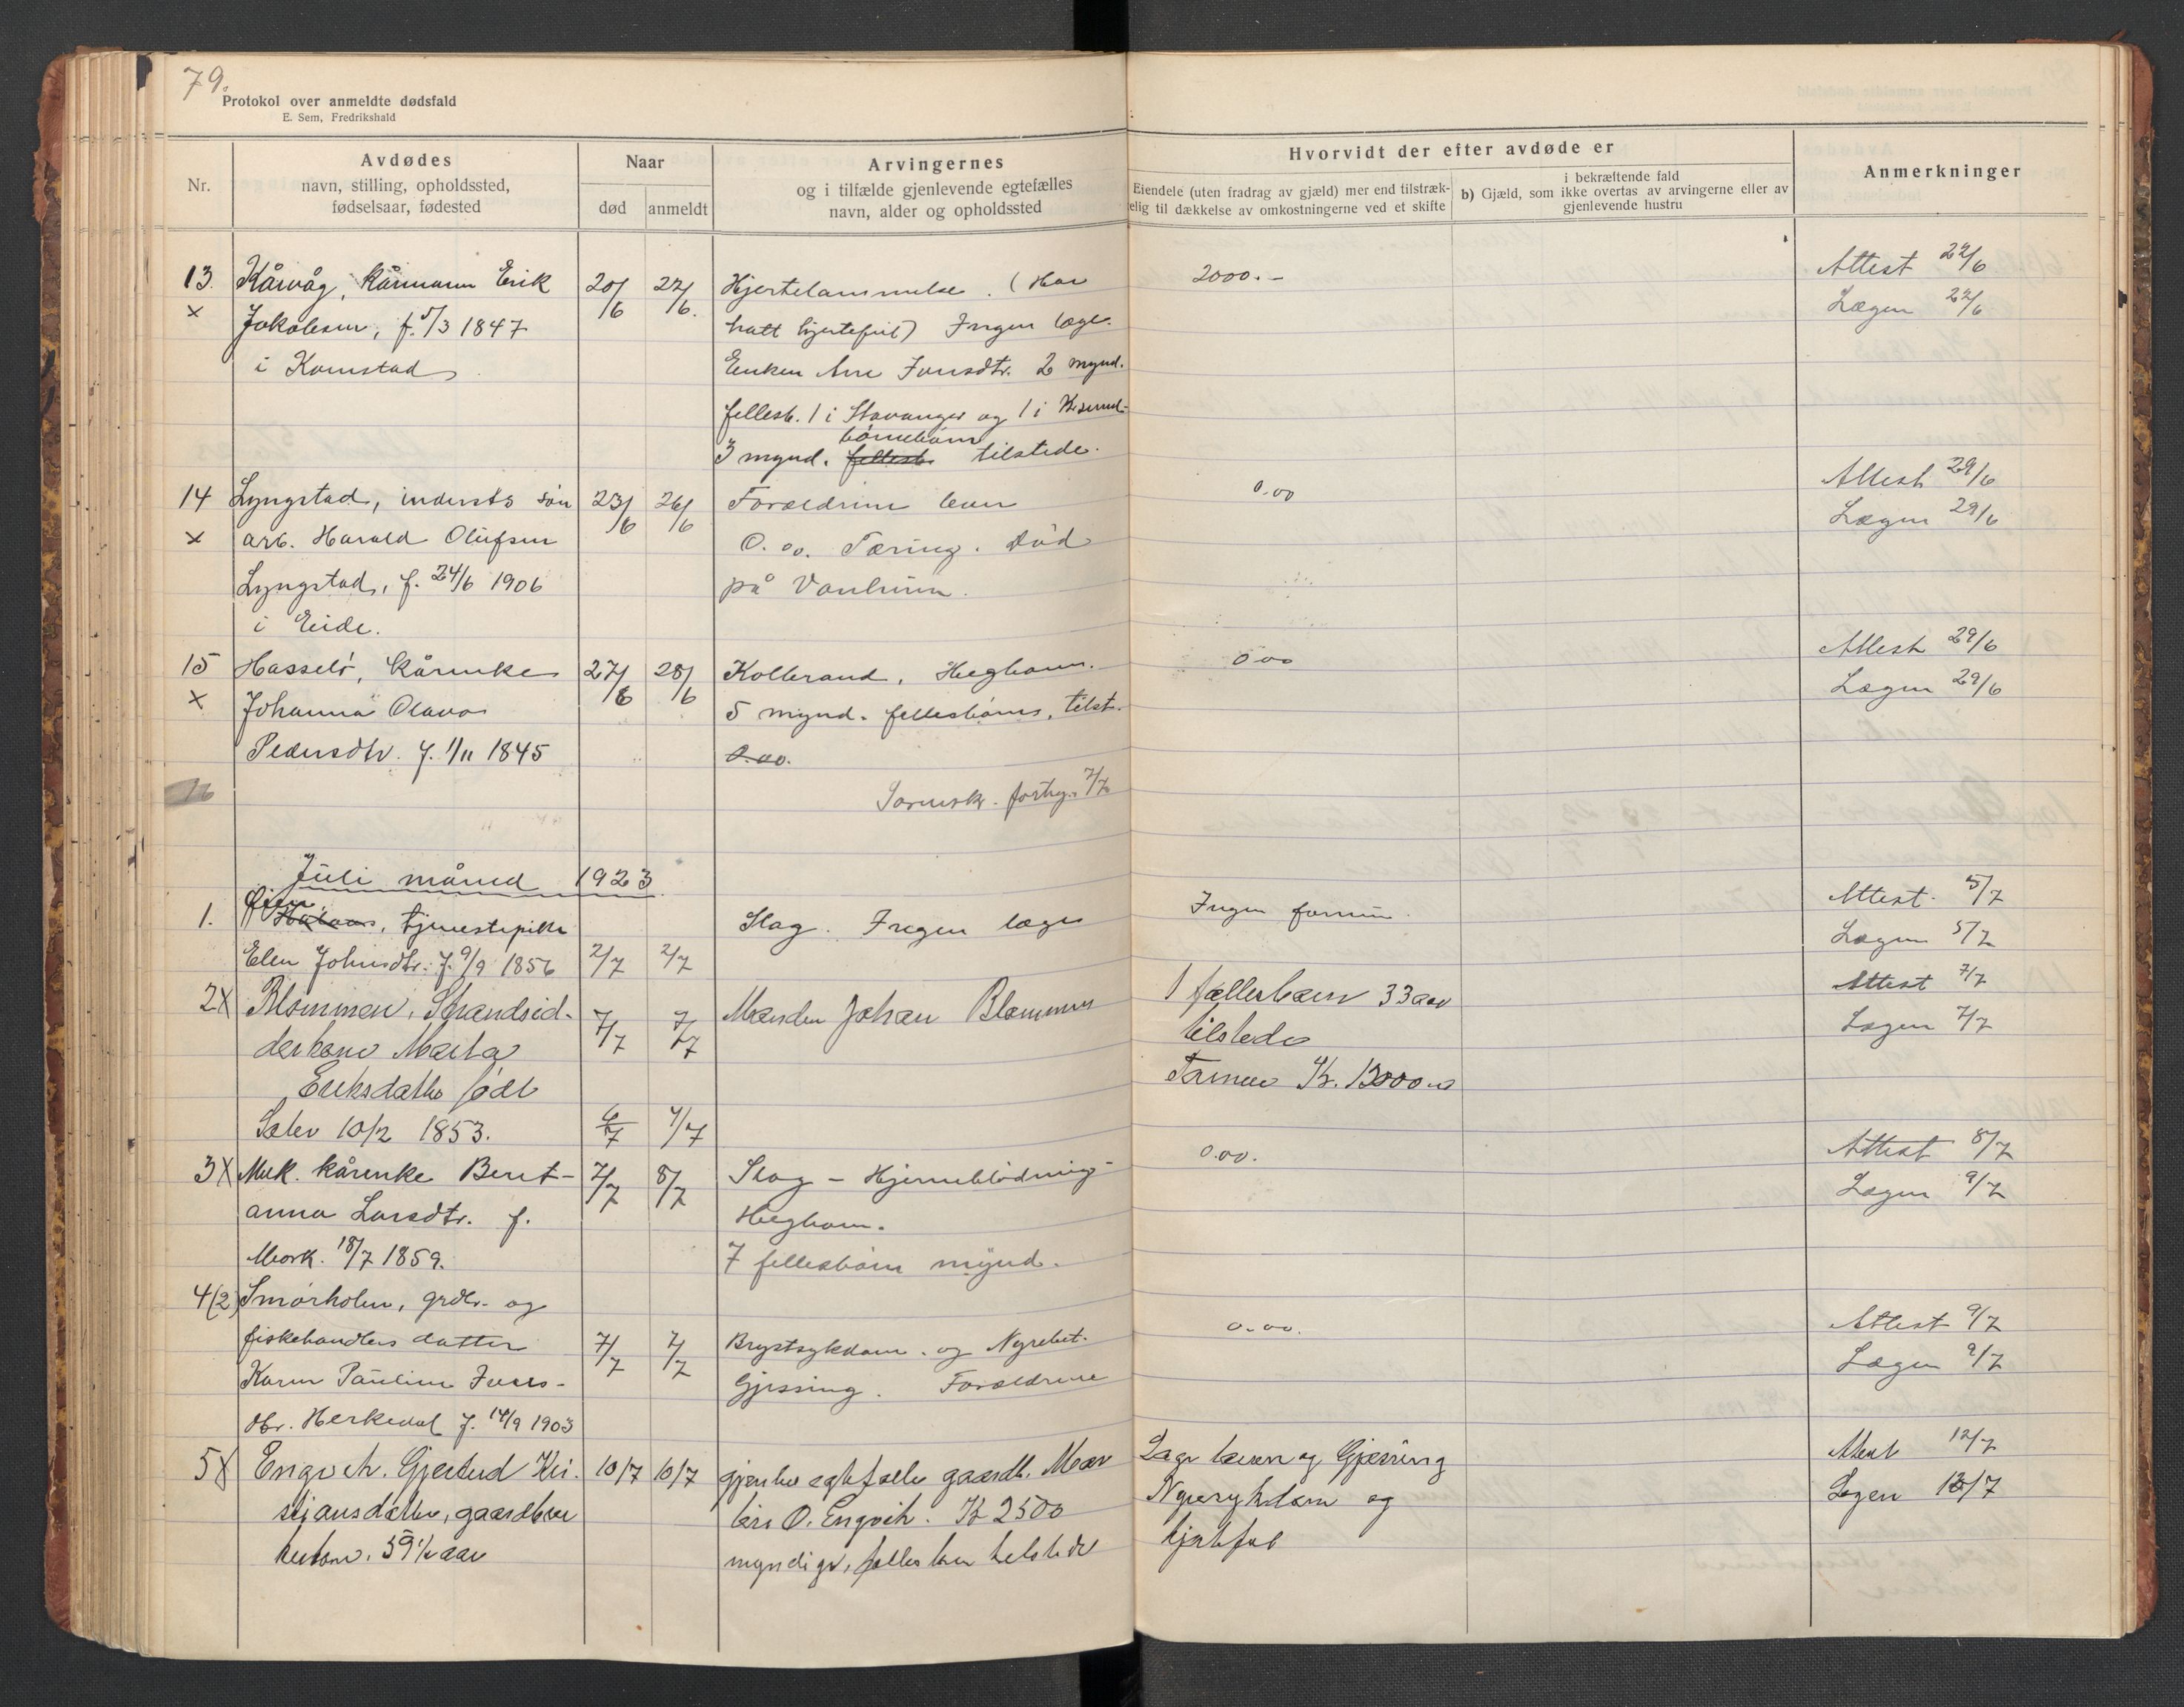 79.
Protokol over anmeldte dødsfald
E. Sem, Fredrikshald
Nr.
Avdødes
navn, stilling, opholdssted,
fødselsaar, fødested
Naar
død
anmeldt
Arvingernes
og i tilfælde gjenlevende egtefælles
navn, alder og opholdssted
Hvorvidt der efter avdøde er
Eiendele (uten fradrag av gjæld) mer end tilstræk-
elig til dækkelse av omkostningerne ved et skifte
i bekræftende fald
b) Gjæld, som ikke overtas av arvingerne eller av
gjenlevende hustru
Anmerkninger
13. Kårvåg, kårmann Erik 20/6 22/6. Hjertelammelse. (Har 2000.- Attest 22/6
x Jakobsen, f. 5/3 1847 hatt hjertefeil) Ingen læge. Lægen 22/6
i Kornstad Enken Ane Jonsdtr. 2 mynd.
fellesb. 1 i Stavanger og 1 i Kr.sund
barnebarn
3 mynd. fellesb. tilstede.
14 Lyngstad, indersts søn 23/6 26/6 Forældrene lever 0.00 Attest 29/6
x arb. Harald Olufsen 0.00. Tæring. Død Lægen 29/6
Lyngstad, f. 24/6 1906 på
i Eide.
15 Hasselø, kårenke 27/6 28/6 Kolbrand, Heghom. 0.00 Attest 29/6
x Johanna Olava 5 mynd. fellesbarn, tilst. Lægen 29/6
Pedersdtr. f. 1/11 1845 0.00.
16 forhg. 7/7
Juli måned 1923
Øien
1. tjenestepike Slag. Ingen læge Ingen formue. Attest 5/7
Elen Johnsdtr. f. 9/9 1856 2/7 2/7 Lægen 5/7
2x Blommen, Strandsid- 7/7 7/7 Manden Johan Blommen 1 fællesbarn 33 aar Attest 7/7
derkone Marta tilstede Lægen 7/7
Eriksdatter født Formue Kr. 13000.00
10/2 1853. 6/7 7/7
3x Mek. kårenke Berit- 7/7 8/7 Slag - Hjerneblødning- 0.00. Attest 8/7
anna Larsdtr. f. Heghom. Lægen 9/7
Mork. 18/7 1859. 7 fellesbarn mynd.
4(2) Smørholm, grdbr. og
fiskehandlers datter 7/7 7/7 Brystsykdom. og Nyrebet. 0.00. Attest 9/7
Karen Pauline Ivers- Gjessing. Forældrene Lægen 9/7
dtr. Herkedal f. 14/9 1903
5x Engvik. Gjertrud Kri- 10/7 10/7 gjenlev egtefælle gaardb. Mar Læge Gjæssing Attest 12/7
stjansdatter, gaardbru O. Engvik. Kr 2500 Nyresykdom og Lægen 12/7
kerkone. 59½ aar myndige, fælles barn tilstede hjertefeil